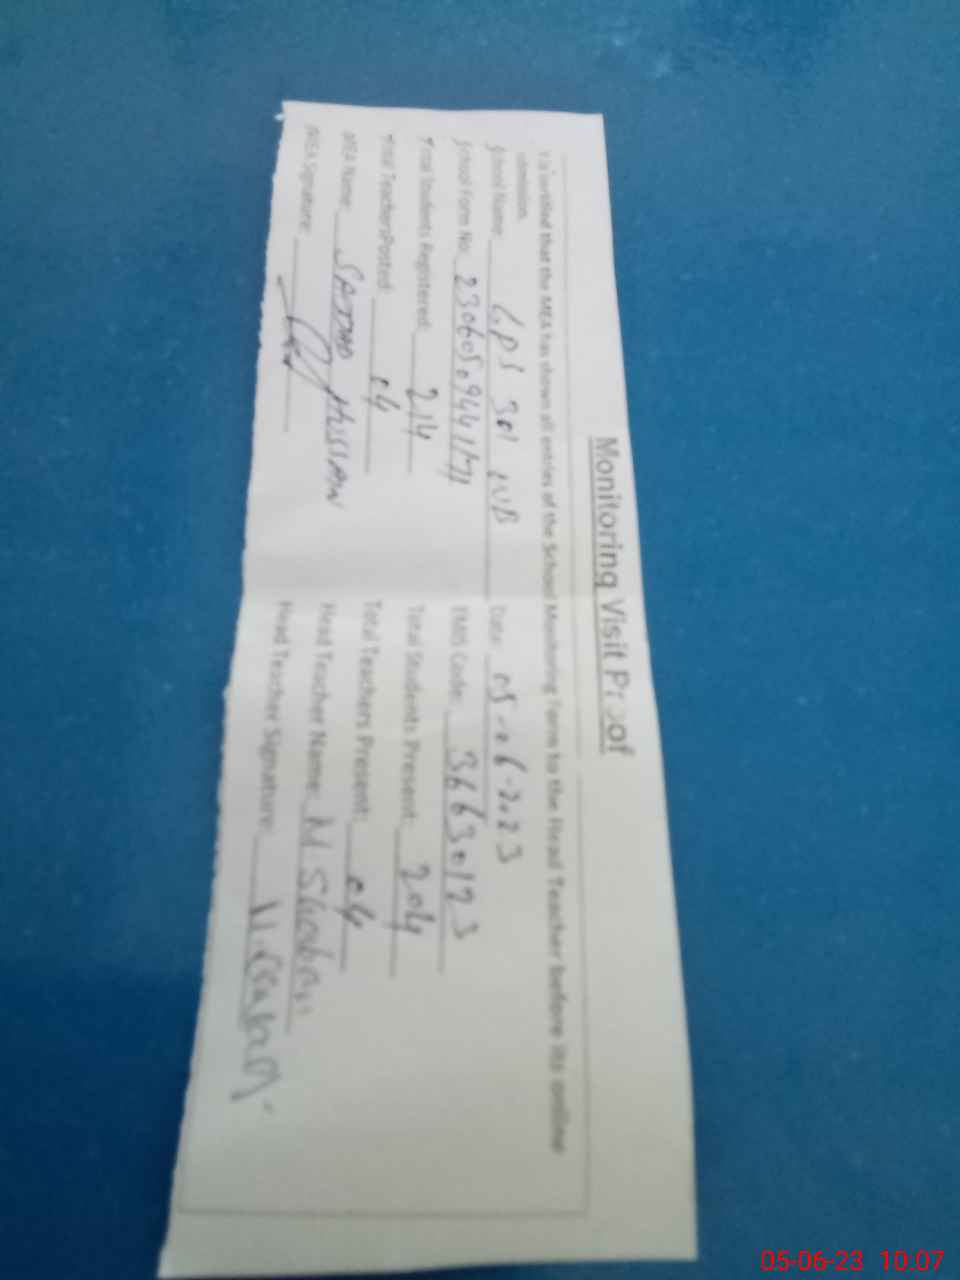 Monitoring Visit Proof
that the MEA has shown all entries of the School Monitoring Form to the Head Teacher before its online
submission.
School Name: GPS 301 WB Date: 05-06-2023
School Form No: EMIS Code: 36630123
Total Students Registered: 214 Total Students Present: 204
Total Teachers Posted: 04 Total Teachers Present: 04
MEA Name: SAJJAD HUSSAIN Head Teacher Name: M.
MEA Signature: Head Teacher Signature:
05-06-23 10:07